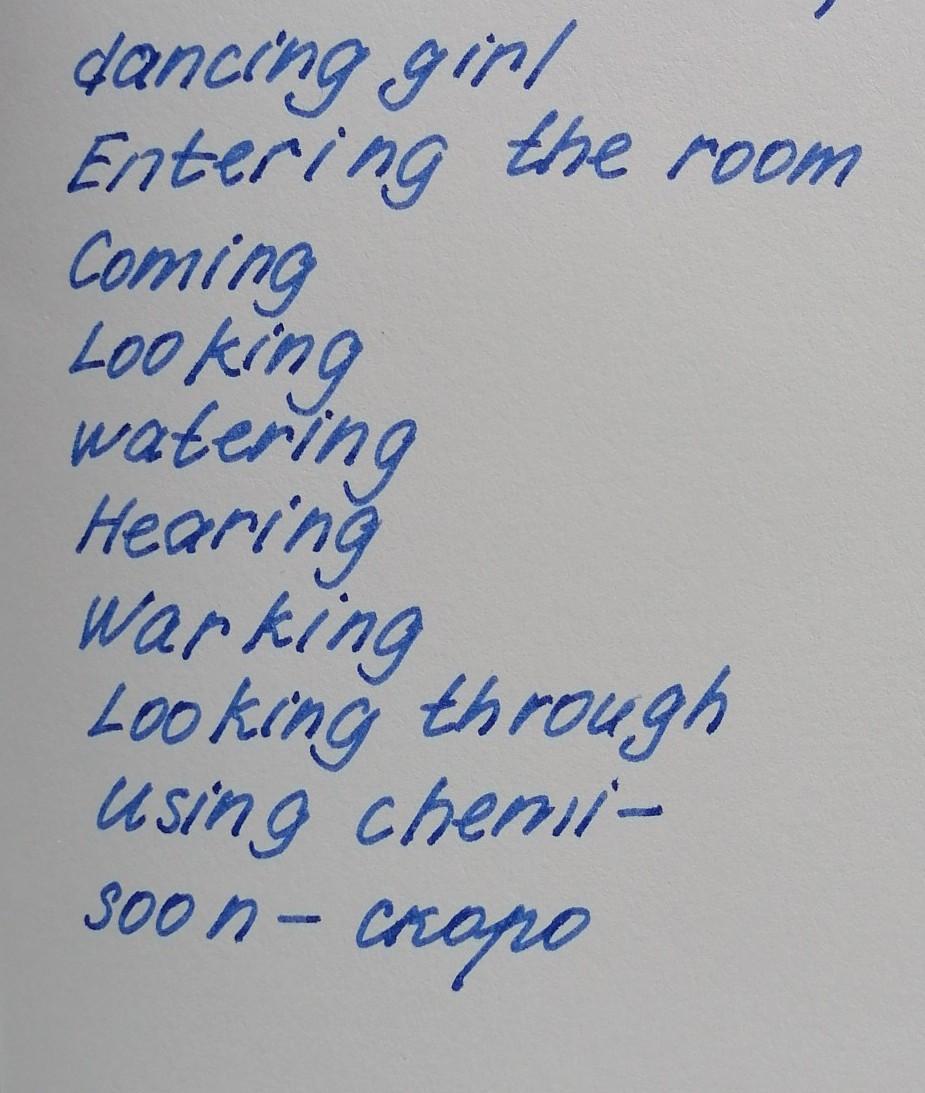 dancing girl
Entering the room
Coming
Looking
watering
Hearing
Warking
Looking through
Using chemii-
soon - скоро